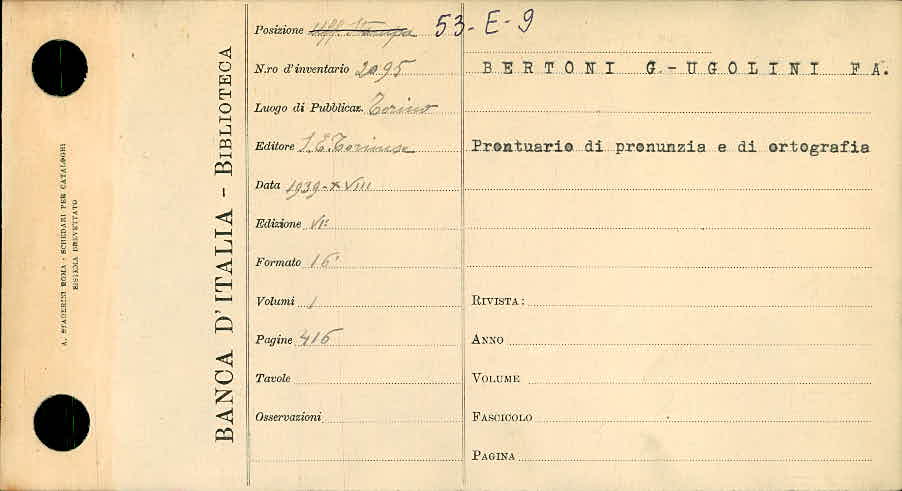 A. STADERINI ROMA - SCHEDARI PER CATALOGHI
SISTEMA BREVETTATO
BANCA D'ITALIA - BIBLIOTECA
Posizione Uff. Stampa 53-E-9
N.ro d'inventario 2095
Luogo di Pubblicaz. Torino
Editore S.E.Torinese
Data 1939-XVIII
Edizione VIa
Formato 16°
Volumi 1
Pagine 416
Tavole
Osservazioni
BERTONI G.-UGOLINI FA.
Prontuario di pronunzia e di ortografia
RIVISTA:
ANNO
VOLUME
FASCICOLO
PAGINA